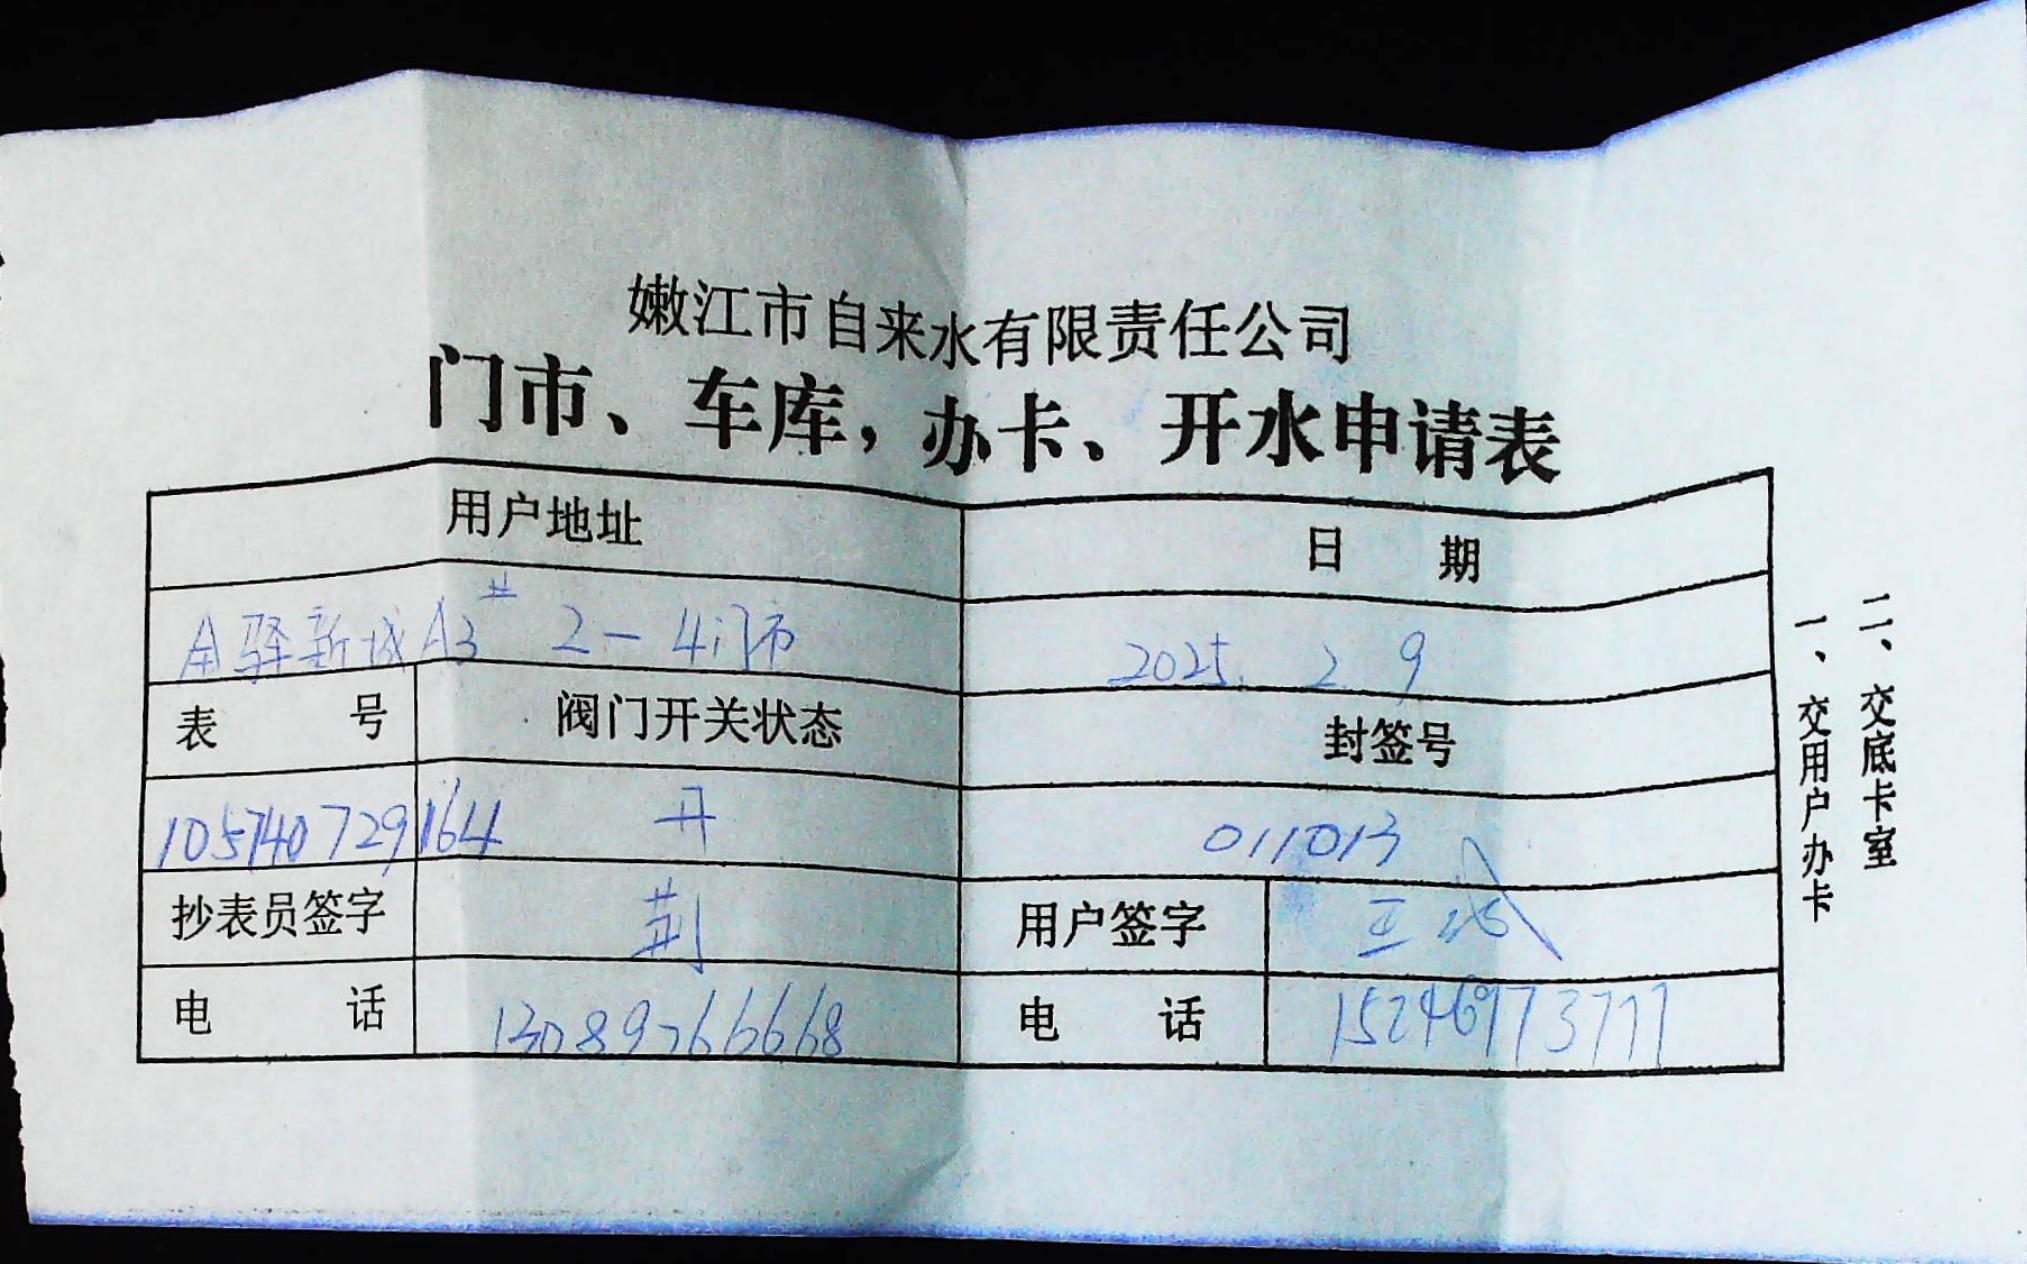 嫩江市自来水有限责任公司
门市、车库，办卡、开水申请表
用户地址 日 期
驿新城A3# 2-4门市 2025. 2 9
表 号 阀门开关状态 封签号
105740729164 开 011013
抄表员签字 荆 用户签字 王
电 话 13089766668 电 话
一、交用户办卡
二、交底卡室